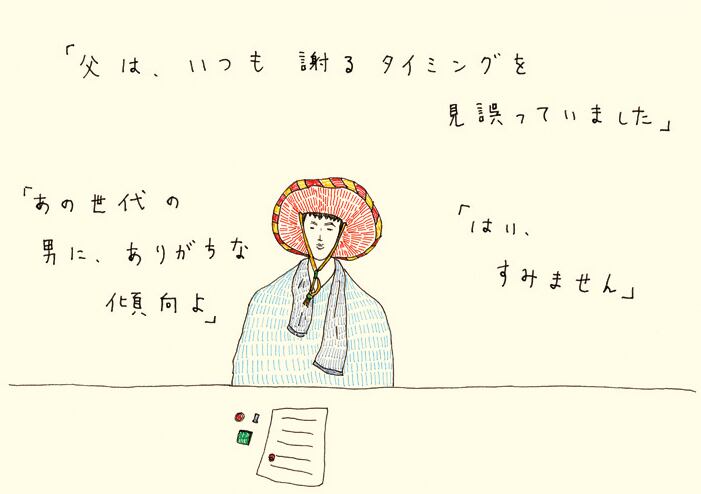 「父は、いつも謝るタイミングを
見誤っていました」
「あの世代の
男に、ありがちな
傾向よ」
「はい、
すみません」